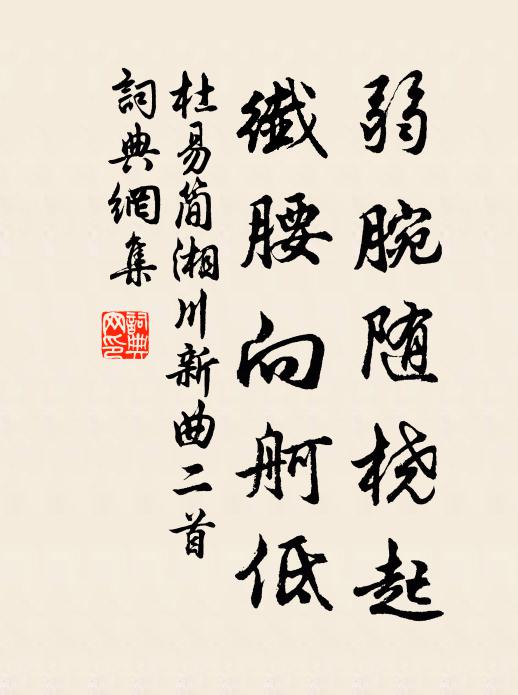 弱腕随桡起
纖腰向舸低
杜易简湘川新曲二首
詞典網集
詞典网印